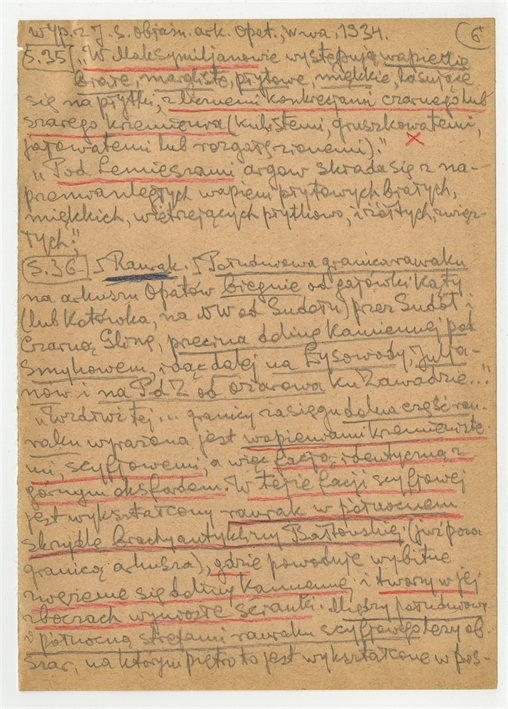 wyp. z J. S. objaśn. ark. Opat., Wwa, 1934.
6
S.35] "W Maksymiljanowie występują wapienie
białe, margliste, płytowe, miękkie, lasujące
się na płytki, z licznemi konkrecjami czarnego lub
szarego krzemienia (kulistemi, gruszkowatemi,
jajowatemi lub rozgałęzionemi)."
"Pod Lemieszami argow składa się z na-
przemianległych wapieni płytowych białych,
miękkich, wietrzejących płytkowo, i żółtych, zwięz-
łych;"
S.36- Rawrak. Północna granica rawraku
na arkuszu Opatów biegnie od gajówki Kąty
(lub Kotówka, na NW od Sudołu) przez Sudół i
Czarną Glinę, przecina dolinę Kamiennej pod
Smykowem, idąc dalej na Łysowody, Julja-
nów i na Pd Z od Ożarowa ku Zawadzie..."
"Wzdłuż tej... granicy zasięgu dolna część rau-
raku wyrażona jest wapieniami krzemieniste-
mi, scyfjowemi, a więc facją identyczną z
górnym oksfordem. W tejże facji scyfjowej
jest wykształcony rawrak w północnem
skrzydle brachyantykliny Bałtowskiej (już poza
granicą arkusza), gdzie powoduje wybitne
zwężenie się doliny Kamiennej i tworzy w jej
zboczach wyniosłe ścianki. Między południową
i północną strefami rawraku scyfjowego leży ob-
szar, na którym piętro to jest wykształcone w pos-